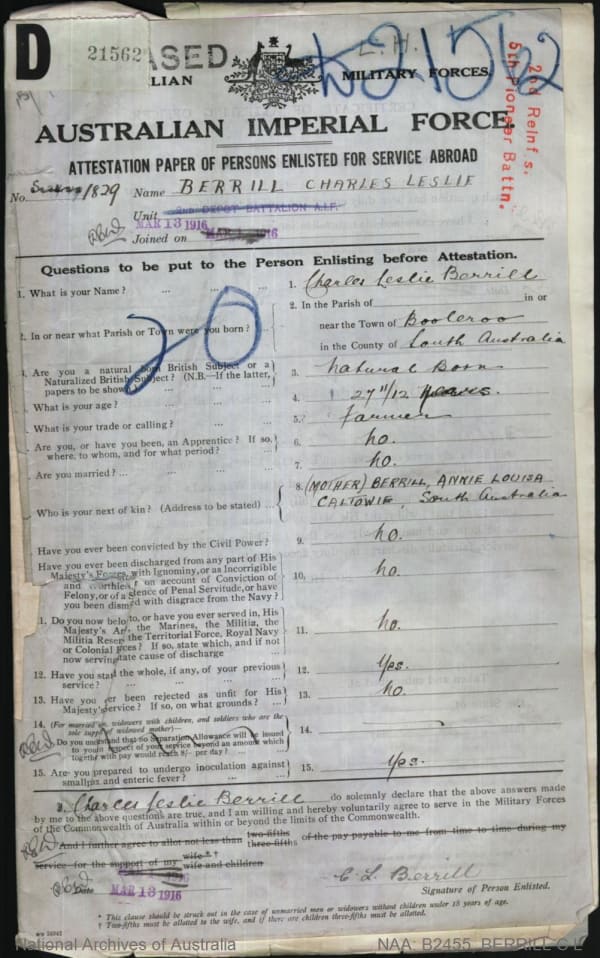 D
21562
ASED
L.H.
21562
LIAN MILITARY FORCES.
AUSTRALIAN IMPERIAL FORCE.
2nd Reinf's.
5th Pioneer Battn.
ATTESTATION PAPER OF PERSONS ENLISTED FOR SERVICE ABROAD
No. 1829 Name BERRILL CHARLES LESLIE
Unit 2nd DEPOT BATTALION A.I.F.
MAR 13 1916
Joined on MAR 1916
Questions to be put to the Person Enlisting before Attestation.
1. What is your Name? ... ... ... 1. Charles Leslie Berrill
20
2. In or near what Parish or Town were you born? ... 2. In the Parish of in or
near the Town of Booleroo
in the County of South Australia
Are you a natural born British Subject or a
Naturalized British Subject? (N.B.—If the latter,
papers to be shown.) 3. Natural Born
What is your age? ... ... ... 4. 27 11/12 years.
What is your trade or calling? ... ... 5. farmer
Are you, or have you been, an Apprentice? If so,
where, to whom, and for what period? ... 6. no.
Are you married? ... ... ... 7. no.
Who is your next of kin? (Address to be stated) ... 8. (MOTHER) BERRILL, ANNIE LOUISA
CALTOWIE, South Australia
Have you ever been convicted by the Civil Power? 9. no.
Have you ever been discharged from any part of His
Majesty's Forces, with Ignominy, or as Incorrigible
and Worthless, on account of Conviction of
Felony, or of a Sentence of Penal Servitude, or have
you been dismissed with disgrace from the Navy? 10. no.
1. Do you now belong to, or have you ever served in, His
Majesty's Army, the Marines, the Militia, the
Militia Reserve, the Territorial Force, Royal Navy
or Colonial Forces? If so, state which, and if not
now serving, state cause of discharge 11. no.
12. Have you stated the whole, if any, of your previous
service? ... ... ... 12. yes.
13. Have you ever been rejected as unfit for His
Majesty's Service? If so, on what grounds? ... 13. no.
14. (For married men, widowers with children, and soldiers who are the
sole support of widowed mother)—
Do you understand that no Separation Allowance will be issued
to you in respect of your service beyond an amount which
together with pay would reach 8/- per day? ... 14.
15. Are you prepared to undergo inoculation against
smallpox and enteric fever? ... ... 15. yes.
I, Charles Leslie Berrill do solemnly declare that the above answers made
by me to the above questions are true, and I am willing and hereby voluntarily agree to serve in the Military Forces
of the Commonwealth of Australia within or beyond the limits of the Commonwealth.
And I further agree to allot not less than two-fifths three-fifths of the pay payable to me from time to time during my
service for the support of my wife* † wife and children
Date MAR 13 1916
C L Berrill
Signature of Person Enlisted.
* This clause should be struck out in the case of unmarried men or widowers without children under 18 years of age.
† Two-fifths must be allotted to the wife, and if there are children three-fifths must be allotted.
National Archives of Australia
NAA: B2455, BERRILL C L